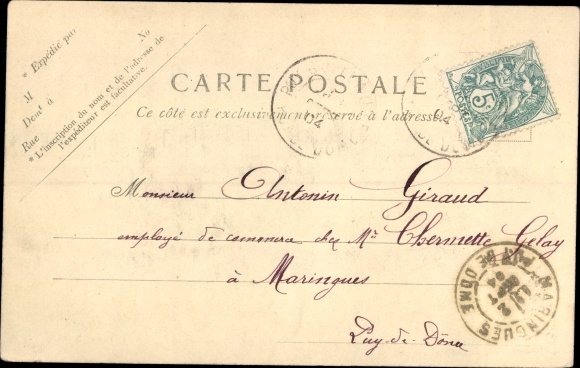 * Expédié par
No
M
Demt à
Rue
* L'inscription du nom et de l'adresse de
l'expéditeur est facultative.
CARTE POSTALE
Ce côté est exclusivement réservé à l'adresse
5c
Monsieur Antonin Giraud
employé de commerce chez Mr Chermette Gelay
à Maringues
Puy-de-Dôme
MARINGUES
PUY DE DOME
04